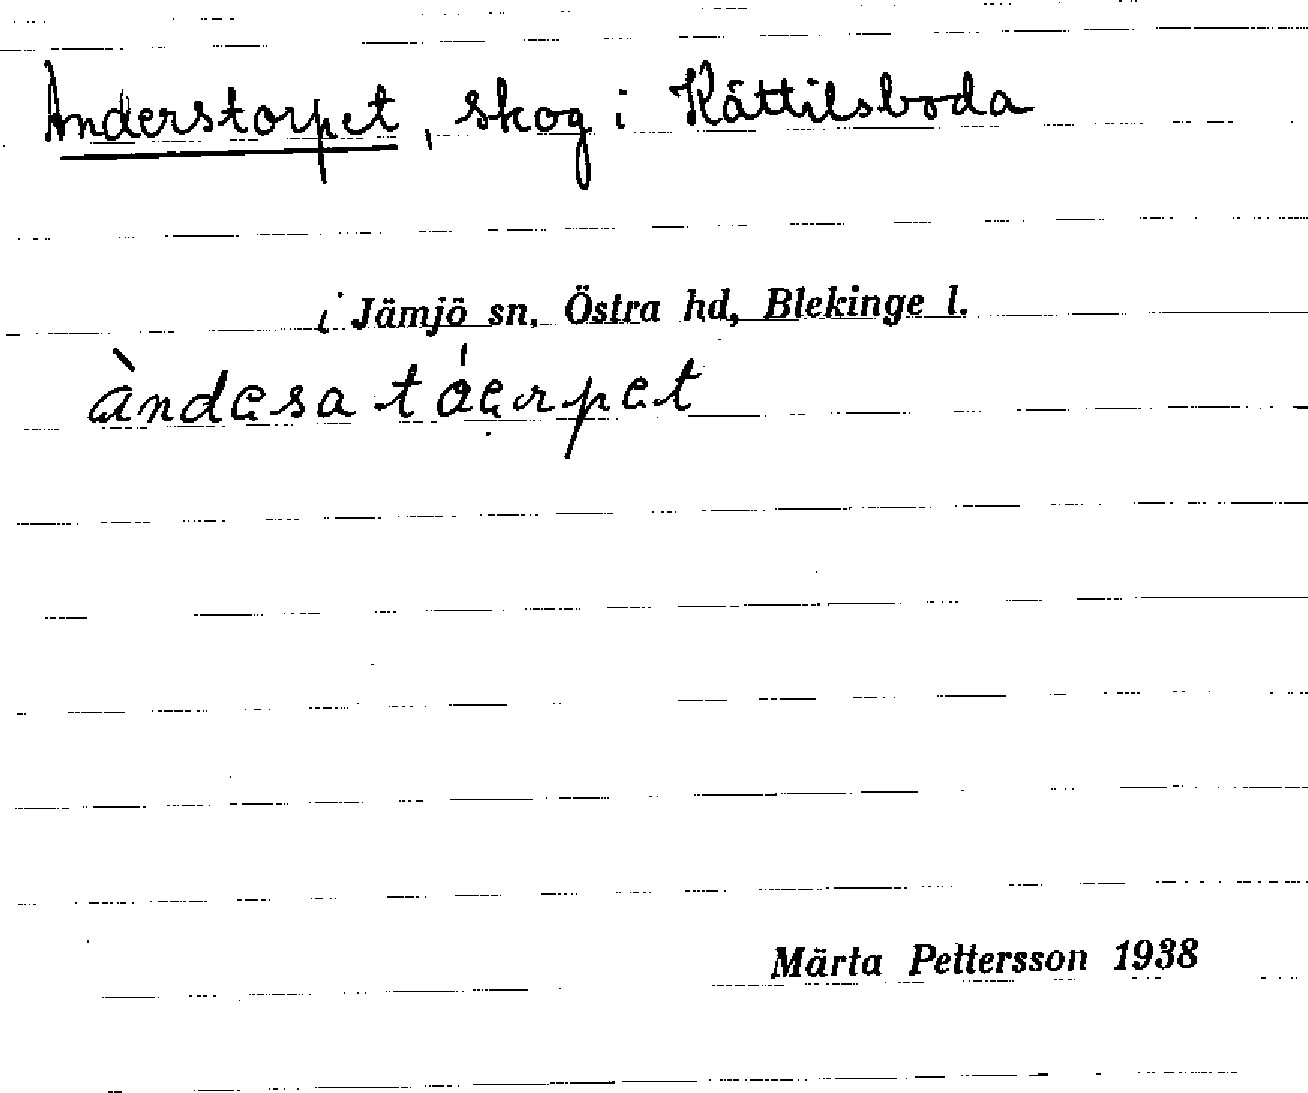 Anderstorpet, skog i Kättilsboda
i Jämjö sn, Östra hd, Blekinge l.
àndesa táerpet
Märta Pettersson 1938